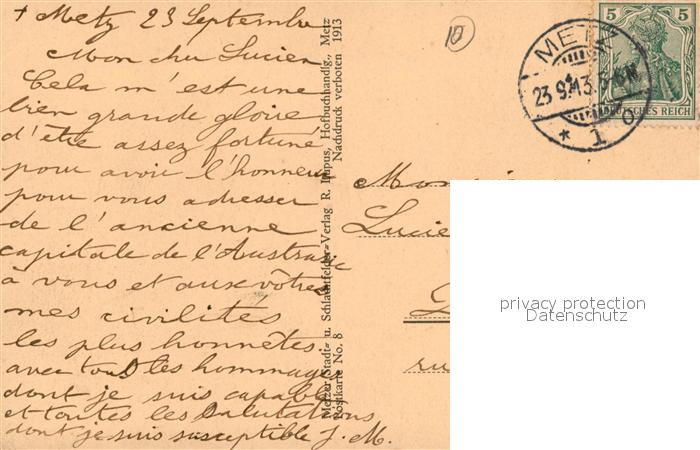 + Metz 23 Septembre
Mon cher Lucien
Cela m'est une
bien grande gloire
d'être assez fortuné
pour avoir l'honneur
pour vous adresser
de l'ancienne
capitale de l'Austrasie
à vous et aux vôtres
mes civilités
les plus honnêtes
avec tous les hommages
dont je suis capable
et toutes les salutations
dont je suis susceptible J. M.
Metzer Stadt- u. Schlachtfelder-Verlag R. Lupus, Hofbuchhandlg., Metz
Postkarte No. 8 Nachdruck verboten 1913
10
METZ
23.9.13.
* 1 o
5 5
DEUTSCHES REICH
Lucie
ru
privacy protection
Datenschutz